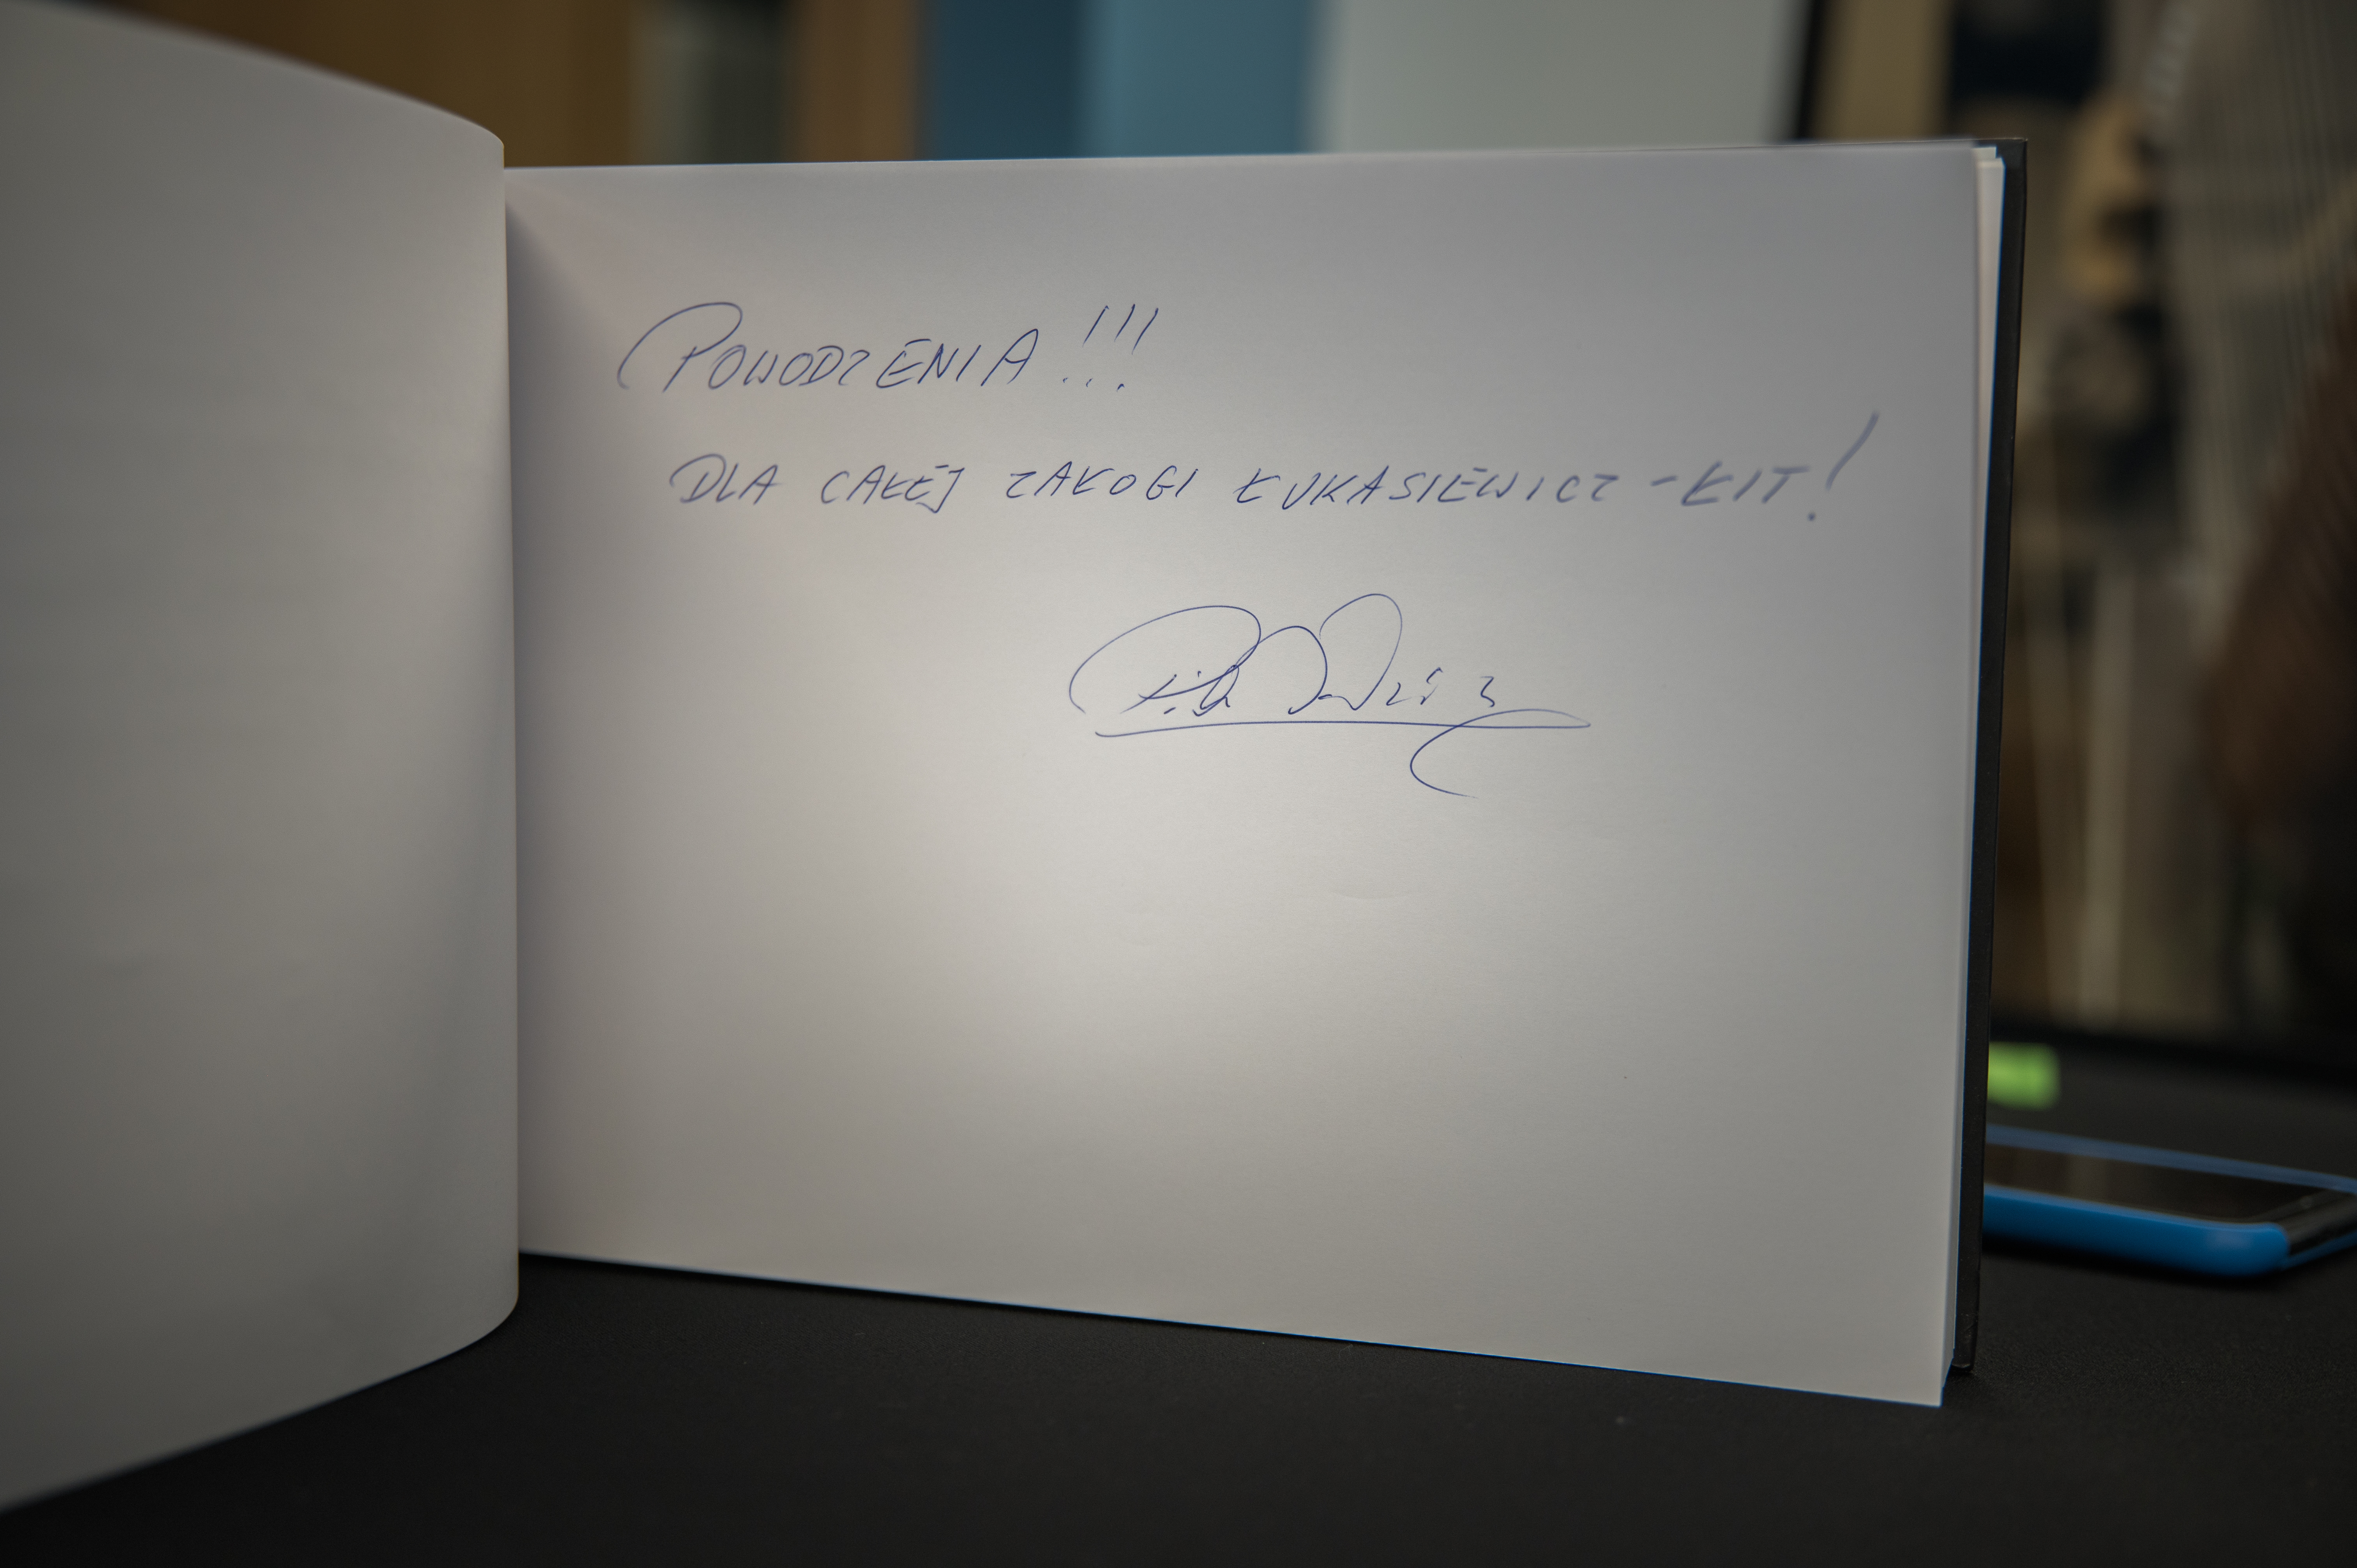 POWODZENIA!!!
DLA CAŁEJ ZAŁOGI ŁUKASIEWICZ - ŁIT!